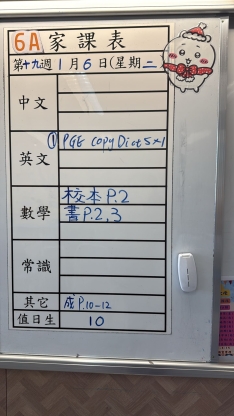 6A 家課表
第十九週 1月6日(星期二
中文
英文
① PGE copy Dict 5×1
數學
校本 P.2
書 P.2,3
常識
其它
成 P.10-12
值日生
10